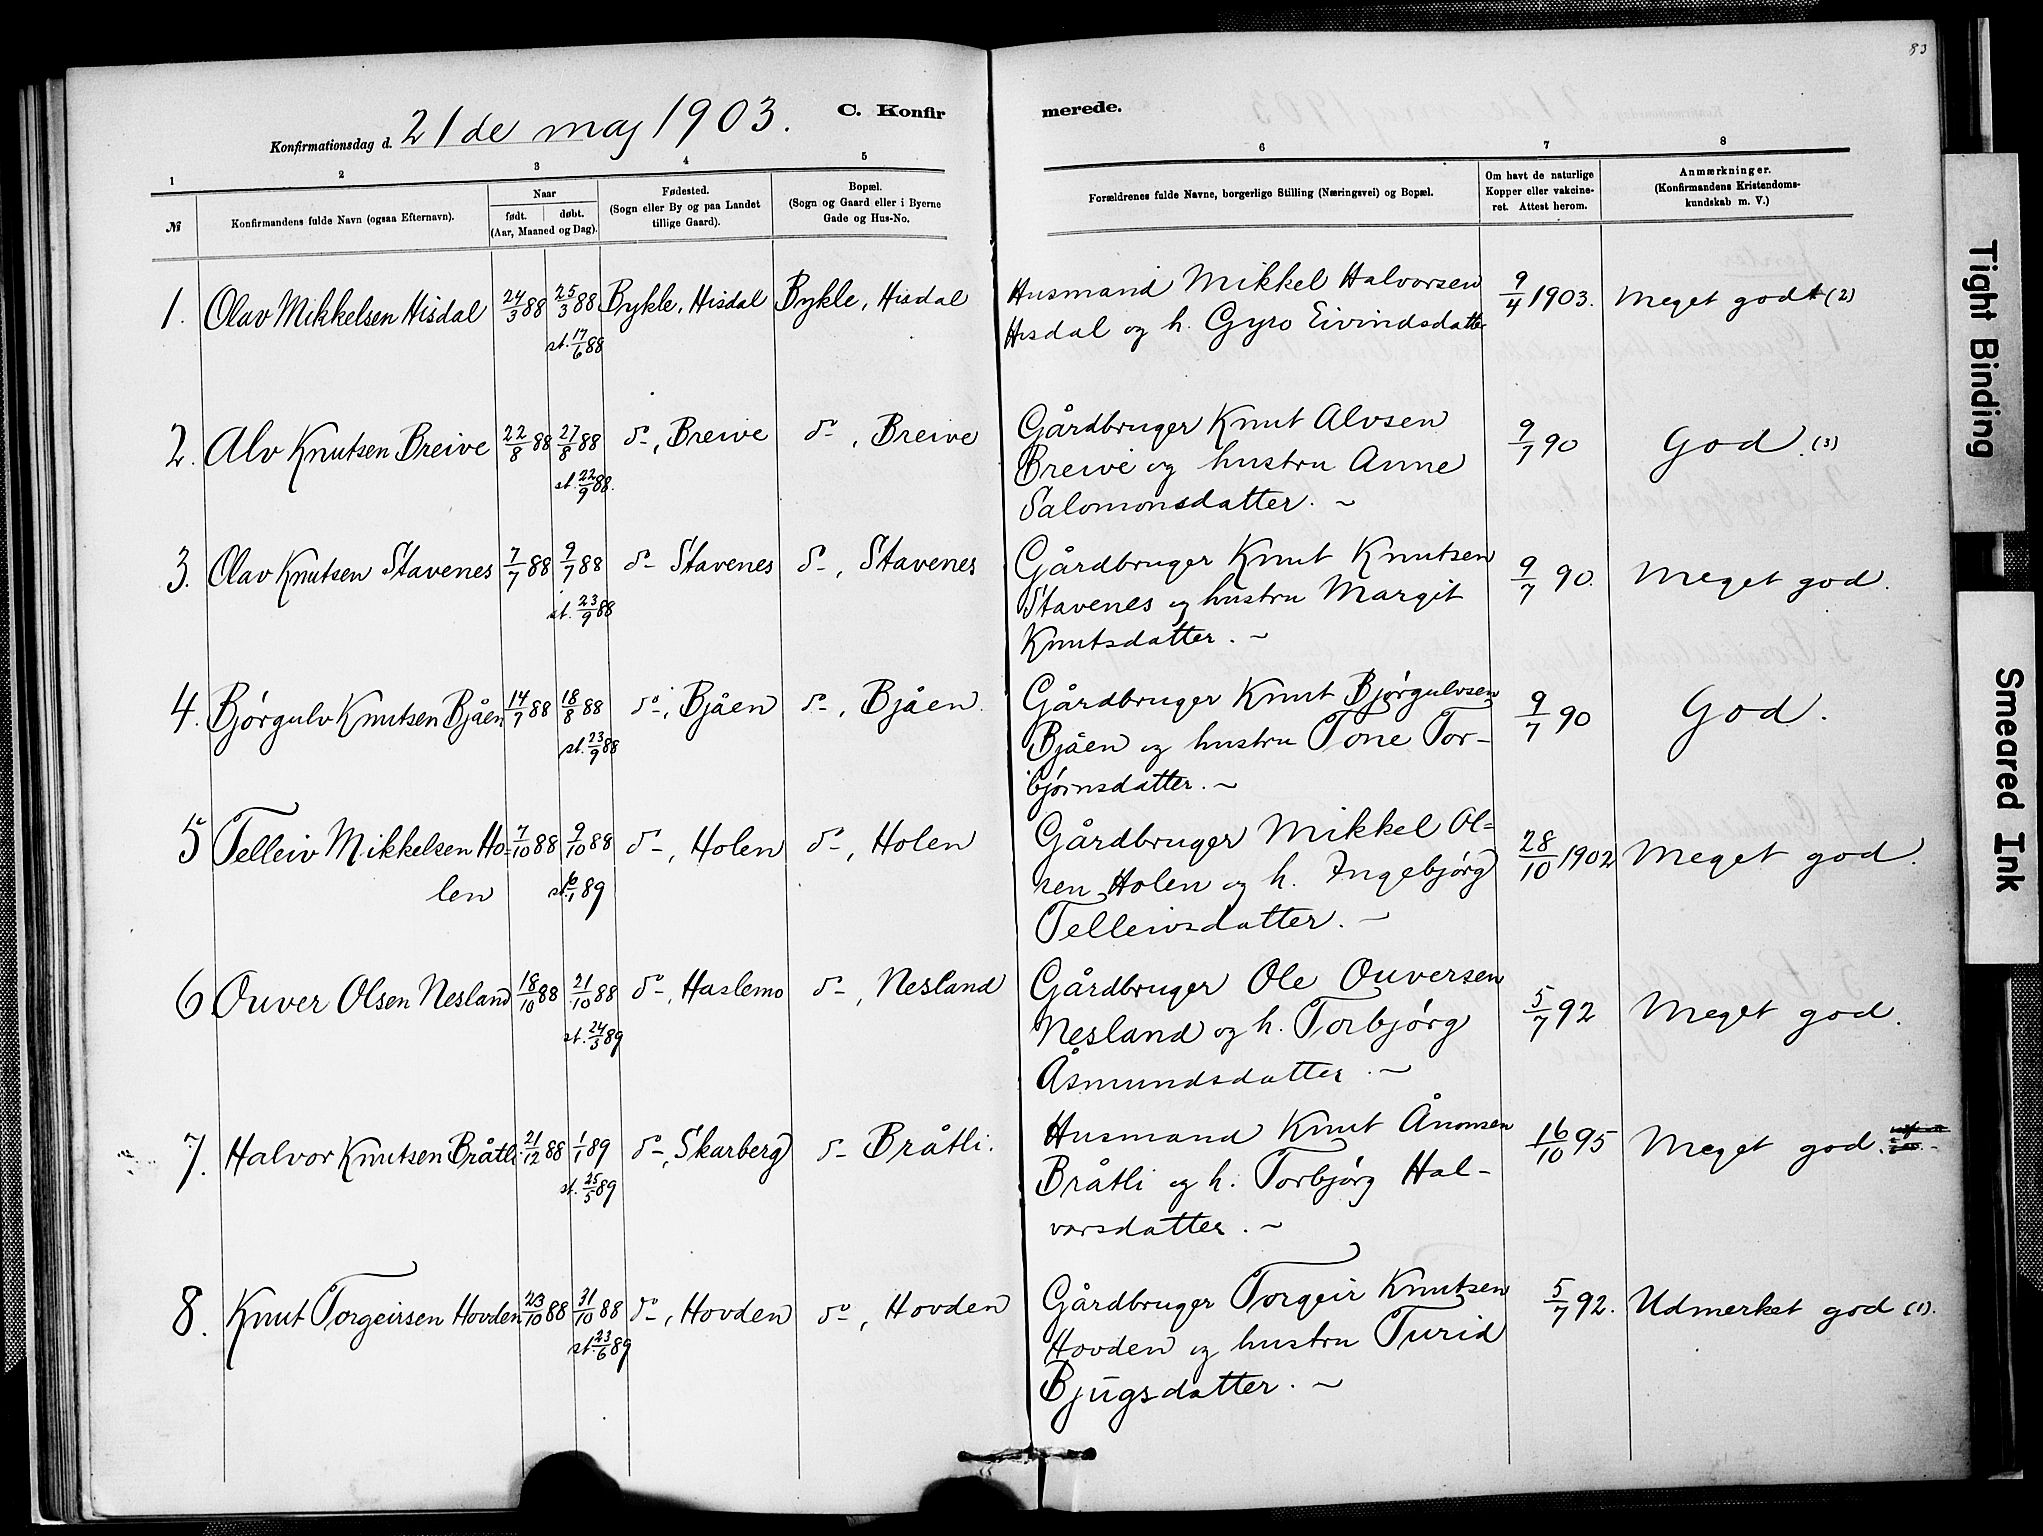 83
C. Konfirmerede.
Konfirmationsdag d. 21de maj 1903.
1 2 3 4 5 6 7 8
№
Konfirmandens fulde Navn (ogsaa Efternavn).
Naar
født. døbt.
(Aar, Maaned og Dag).
Fødested.
(Sogn eller By og paa Landet
tillige Gaard).
Bopæl.
(Sogn og Gaard eller i Byerne
Gade og Hus-No.
Forældrenes fulde Navne, borgerlige Stilling (Næringsvei) og Bopæl.
Om havt de naturlige
Kopper eller vakcine-
ret. Attest herom.
Anmærkninger.
(Konfirmandens Kristendoms-
kundskab m. V.)
1. Olav Mikkelsen Hisdal 24/3 88 25/3 88 Bykle, Hisdal Bykle, Hisdal Husmand Mikkel Halvorsen 9/4 1903. Meget godt (2)
st. 17/6 88 Hisdal og h. Gyro Eivindsdatter
2. Alv Knutsen Breive 22/8 88 27/8 88 do, Breive do, Breive Gårdbruger Knut Alvsen 9/7 90 God. (3)
st. 22/9 88. Breive og hustru Anne
Salomonsdatter. ~
3. Olav Knutsen Stavenes 7/7 88 9/7 88 do Stavenes do, Stavenes Gårdbruger Knut Knutsen 9/7 90. Meget god.
st. 23/9 88 Stavenes og hustru Margit
Knutsdatter. ~
4. Bjørgulv Knutsen Bjåen 14/7 88 18/8 88 do, Bjåen do, Bjåen. Gårdbruger Knut Bjørgulvsen 9/7 90 God.
st. 23/9 88 Bjåen og hustru Tone Tor-
bjørnsdatter. ~
5 Telleiv Mikkelsen Ho- 7/10 88 9/10 88 do, Holen do, Holen Gårdbruger Mikkel Ol= 28/10 1902 Meget god.
len st. 6/1 89 sen Holen og h. Ingebjørg
Telleivsdatter. ~
6. Ouver Olsen Nesland 18/10 88 21/10 88 do, Haslemo do, Nesland Gårdbruger Ole Ouversen 5/7 92 Meget god.
st. 24/5 89 Nesland og h. Torbjørg
Åsmundsdatter. ~
7. Halvor Knutsen Bråtli. 21/12 88 1/1 89 do, Skarberg do Bråtli. Husmand Knut Ånonsen 16/10 95 Meget god.
st. 25/5 89 Bråtli og h. Torbjørg Hal-
vorsdatter. ~
8. Knut Torgeirsen Hovden 23/10 88 31/10 88 do, Hovden do, Hovden Gårdbruger Torgeir Knutsen 5/7 92. Udmerket god (1).
st. 23/6 89 Hovden og hustru Turid
Bjugsdatter. ~
Tight Binding
Smeared Ink